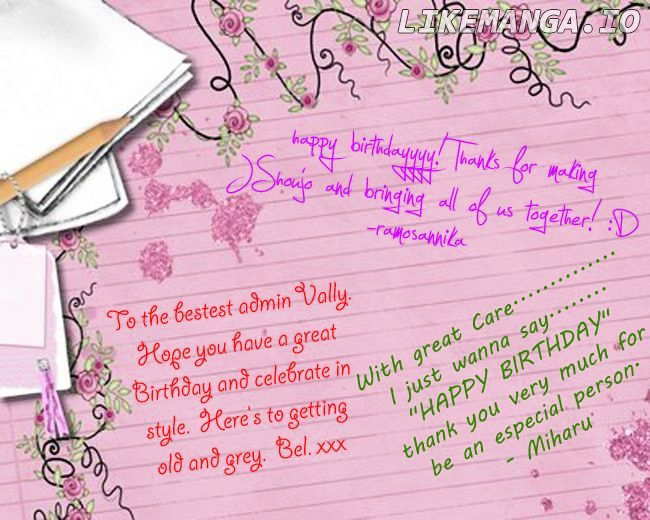 LIKEMANGA.IO
happy birthdayyyy! Thanks for making
JShoujo and bringing all of us together! :D
-ramosannika
To the bestest admin Vally.
Hope you have a great
Birthday and celebrate in
style. Here's to getting
old and grey. Bel. xxx
With great Care..............
I just wanna say........
"HAPPY BIRTHDAY"
thank you very much for
be an especial person.
- Miharu